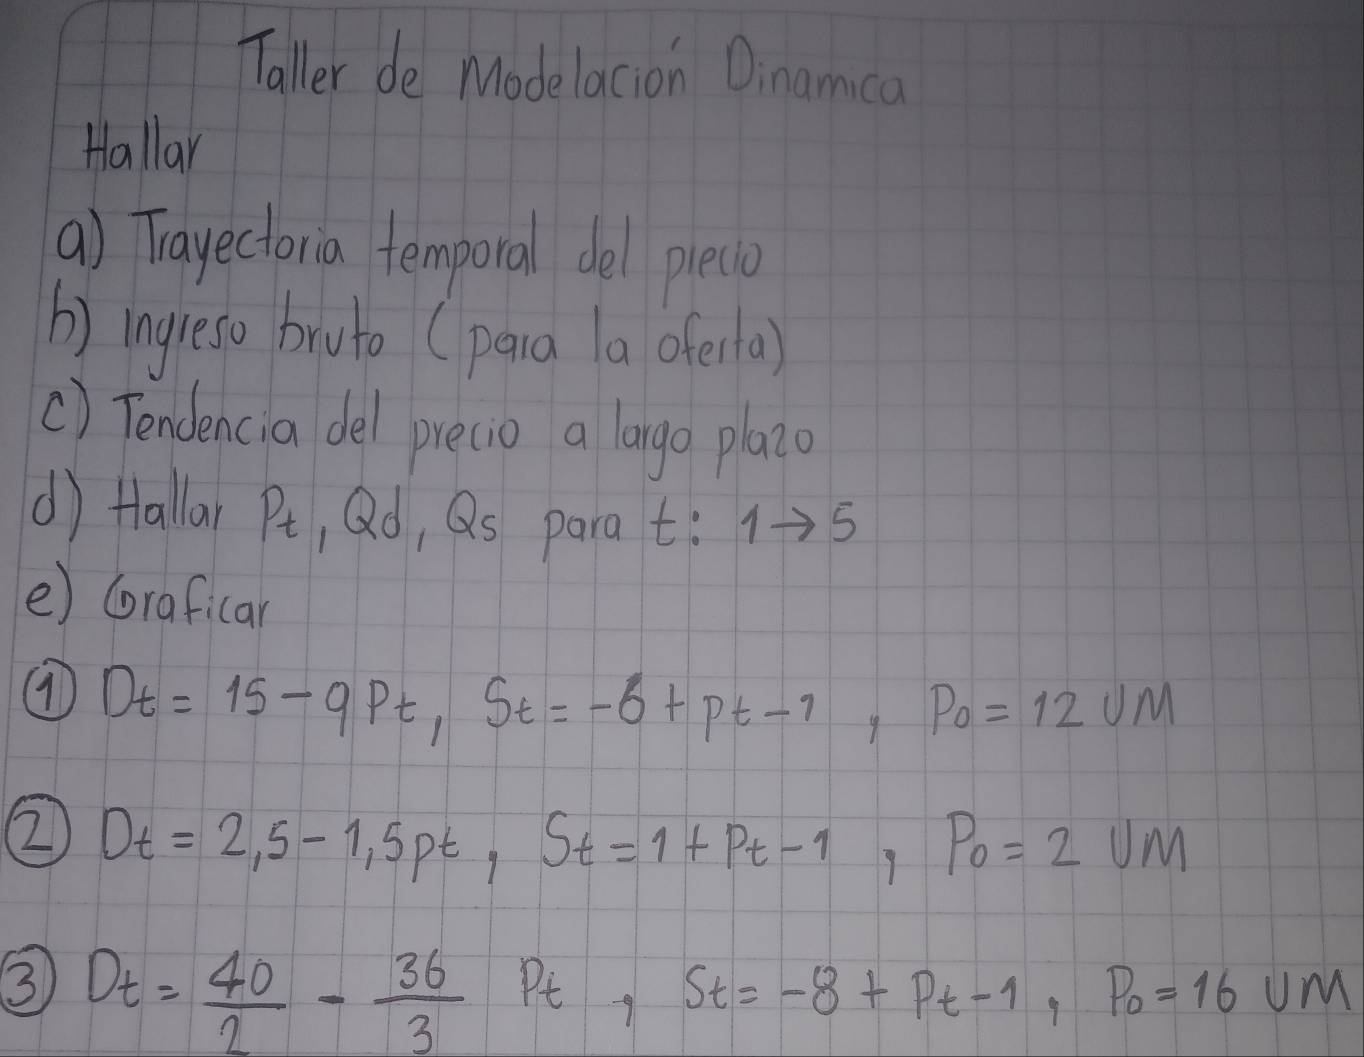 Taller de Modelación Dinamica
Hallar
a) Trayectoria temporal del precio
b) ingreso bruto (para la oferta)
c) Tendencia del precio a largo plazo
d) Hallar Pt, Qd, Qs para t: 1→5
e) Graficar
① Dt = 15 - 9Pt, St = -6 + Pt-1, P0 = 12 UM
② Dt = 2,5 - 1,5pt, St = 1 + Pt-1, P0 = 2 UM
③ Dt = 40/2 - 36/3 Pt, St = -8 + Pt-1, P0 = 16 UM